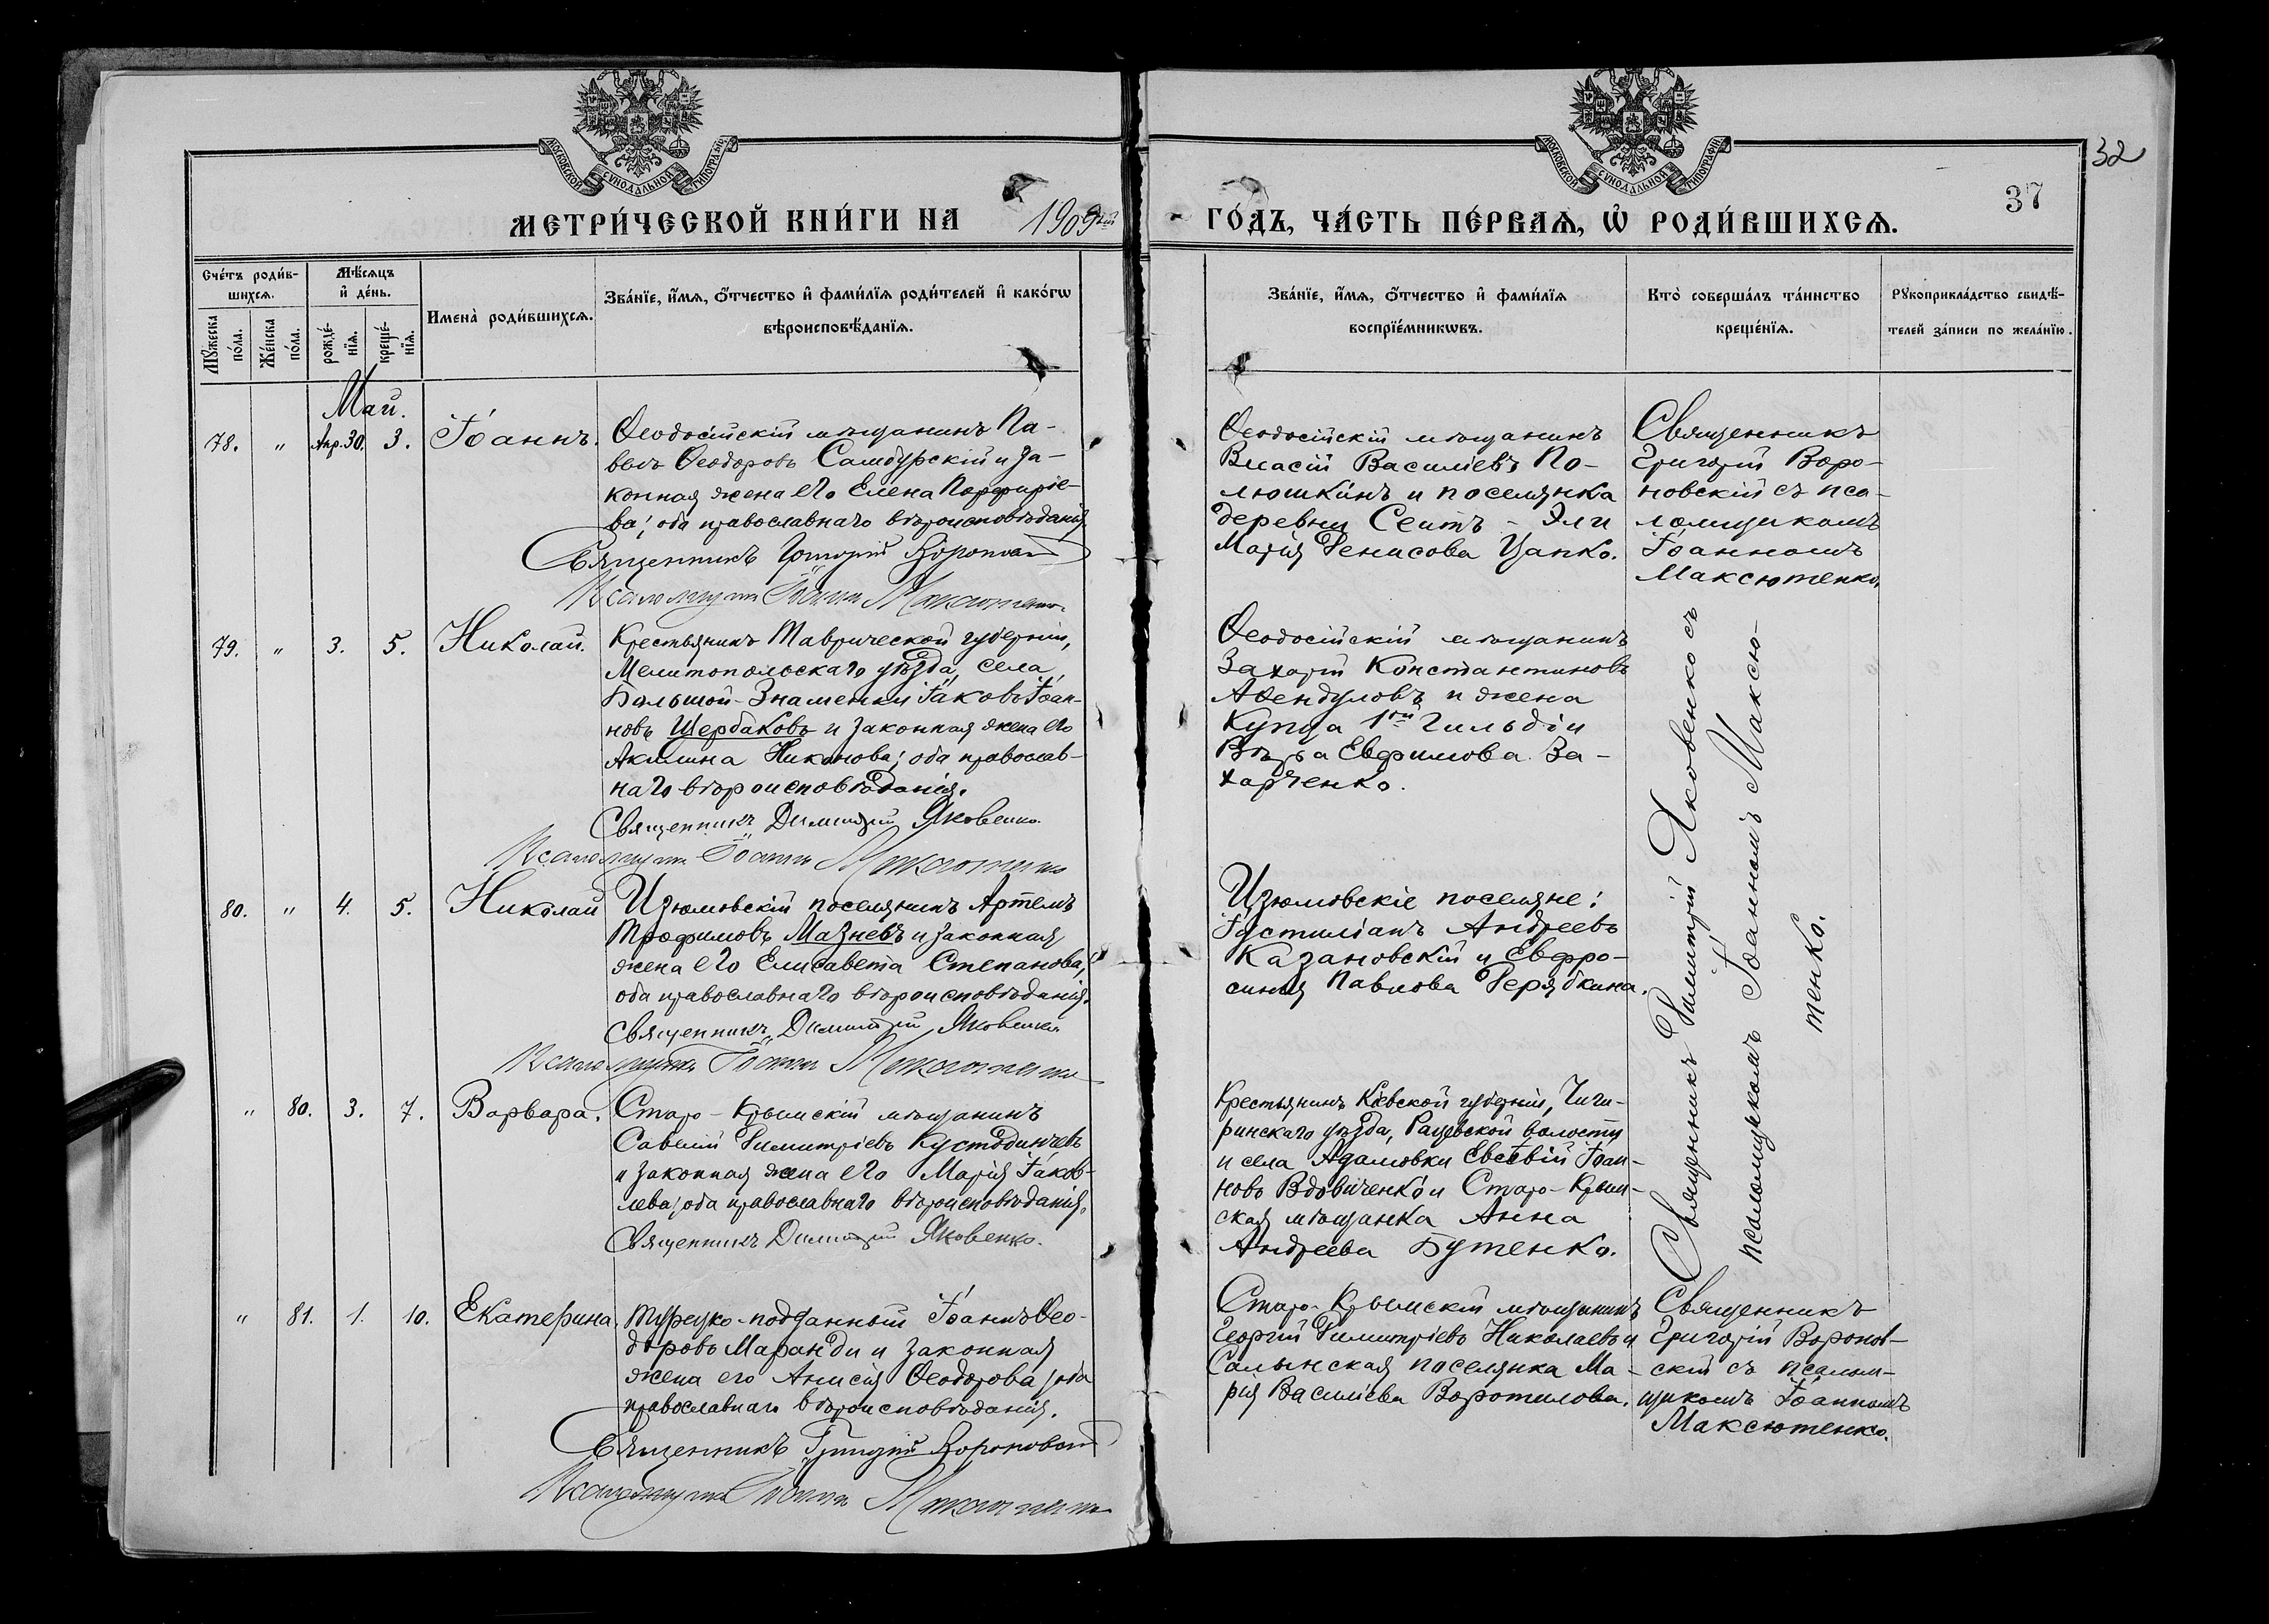 МОСКОВСКОЙ СѴНОДАЛЬНОЙ ТИПОГРАФІИ
МОСКОВСКОЙ СѴНОДАЛЬНОЙ ТИПОГРАФІИ
32
37
МЕТРИ́ЧЕСКОЙ КНИ́ГИ НА 1909ый ГО́ДЪ, ЧА́СТЬ ПЕ́РВАѦ, Ѡ҆ РОДИ́ВШИХСѦ.
Сче́тъ роди́в-
шихсѧ.
Мѣ́сѧцъ
и҆ де́нь.
Имена̀ роди́вшихсѧ.
Зва́нїе, и҆́мѧ, ѻ҆́тчество и҆ фами́лїѧ роди́телей и҆ како́гѡ
вѣроисповѣ́данїѧ.
Мꙋ́жеска
по́ла.
Же́нска
по́ла.
рожде́-
нїѧ.
креще́-
нїѧ.
Зва́нїе, и҆́мѧ, ѻ҆́тчество и҆ фами́лїѧ
воспрїе́мникѡвъ.
Кто̀ соверша́лъ та́инство
креще́нїѧ.
Рꙋкоприкла́дство свидѣ́-
телей за́писи по жела́нїю.
Май.
78. " Апр. 30. 3. Іоаннъ.
Ѳеодосійскій мѣщанинъ Па-
велъ Ѳеодоровъ Самбурскій и за-
конная жена его Елена Порфиріе-
ва; оба православнаго вѣроисповѣданія.
Священникъ Григорій Вороновскій
Псаломщикъ Іоаннъ Максютенко.
Ѳеодосійскій мѣщанинъ
Власій Василіевъ По-
люшкинъ и поселянка
деревни Сеитъ - Эли
Марія Денисова Цапко.
Священникъ
Григорій Воро-
новскій съ пса-
ломщикомъ
Іоанномъ
Максютенко.
79. " 3. 5. Николай.
Крестьянинъ Таврической губерніи,
Мелитопольскаго уѣзда, села
Большой-Знаменки Іаковъ Іоан-
новъ Щербаковъ и законная жена его
Акилина Никонова; оба православ-
наго вѣроисповѣданія.
Священникъ Димитрій Яковенко.
Псаломщикъ Іоаннъ Максютенко
Ѳеодосійскій мѣщанинъ
Захарій Константиновъ
Авендуловъ и жена
Купца 1ой Гильдіи
Вѣра Евфимова За-
харченко.
Священникъ Димитрій Яковенко съ
псаломщикомъ Іоанномъ Максю-
тенко.
80. " 4. 5. Николай
Изюмовскій поселянинъ Артемъ
Трофимовъ Мазневъ и законная
жена его Елисавета Степанова,
оба православнаго вѣроисповѣданія.
Священникъ Димитрій Яковенко
Псаломщикъ Іоаннъ Максютенко
Изюмовскіе поселяне:
Іустиніанъ Андреевъ
Казановскій и Евфро-
синія Павлова Дерябкина.
" 80. 3. 7. Варвара.
Старо-Крымскій мѣщанинъ
Савелій Димитріевъ Кустодинчевъ
и законная жена его Марія Іаков-
лева; оба православнаго вѣроисповѣданія.
Священникъ Димитрій Яковенко.
Крестьянинъ Кіевской губерніи, Чиги-
ринскаго уѣзда, Рацевской волости
и села Адамовки Евсевій Іоан-
новъ Вдовиченко и Старо-Крым-
ская мѣщанка Анна
Андреева Бутенко.
" 81. 1. 10. Екатерина.
Турецко-подданный Іоаннъ Ѳео-
доровъ Маранди и законная
жена его Анисія Ѳеодорова; оба
православнаго вѣроисповѣданія.
Священникъ Григорій Вороновскій
Псаломщикъ Іоаннъ Максютенко
Старо-Крымскій мѣщанинъ
Георгій Димитріевъ Николаевъ и
Салынская поселянка Ма-
рія Василіева Воротилова.
Священникъ
Григорій Воронов-
скій съ псалом-
щикомъ Іоанномъ
Максютенко.